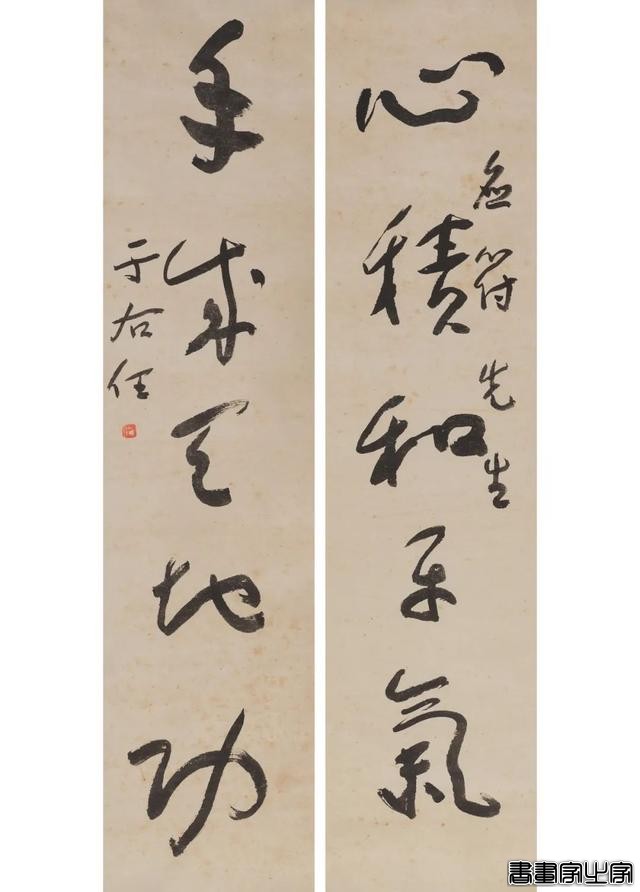 心積和平氣
符先生
手成天地功
于右任
書畫家之家